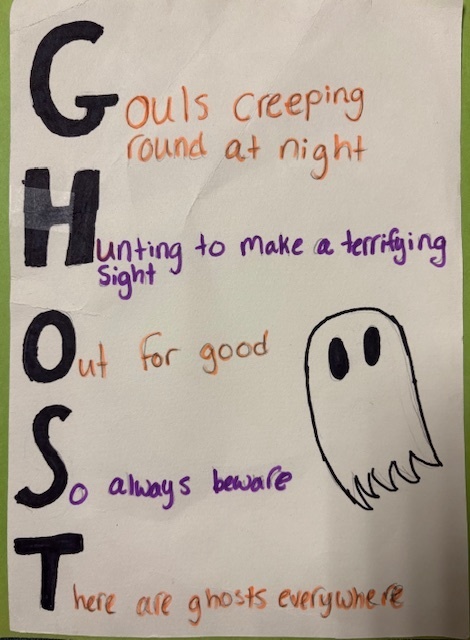 Gouls creeping
round at night
Hunting to make a terrifying
sight
Out for good
So always beware
There are ghosts everywhere